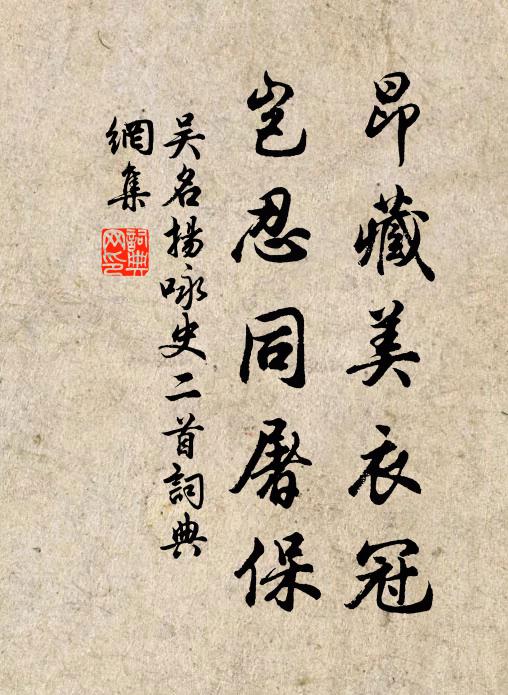 昂藏美衣冠
岂忍同屠保
吴名扬咏史二首词典
網集
詞典
网印